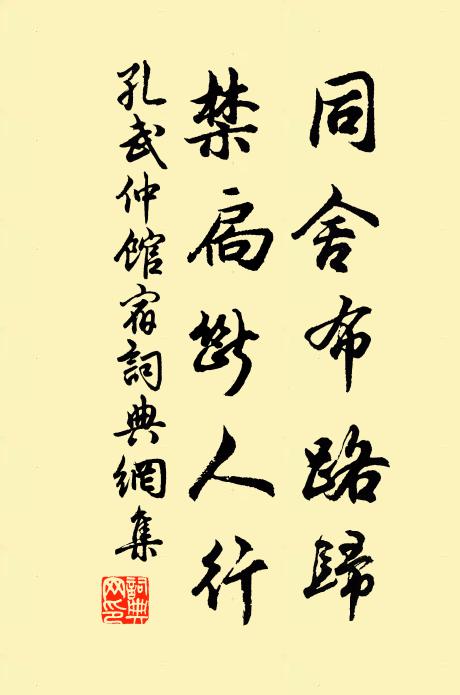 同舍布路歸
禁扃斷人行
孔武仲館宿詞典網集
詞典网印